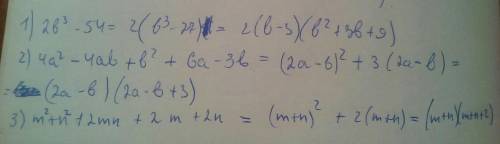 1) 2b³ - 54 = 2(b³ - 27) = 2(b-3)(b² + 3b + 9)
2) 4a² - 4ab + b² + 6a - 3b = (2a - b)² + 3(2a - b) =
= (2a - b)(2a - b + 3)
3) m² + n² + 2mn + 2m + 2n = (m+n)² + 2(m+n) = (m+n)(m+n+2)